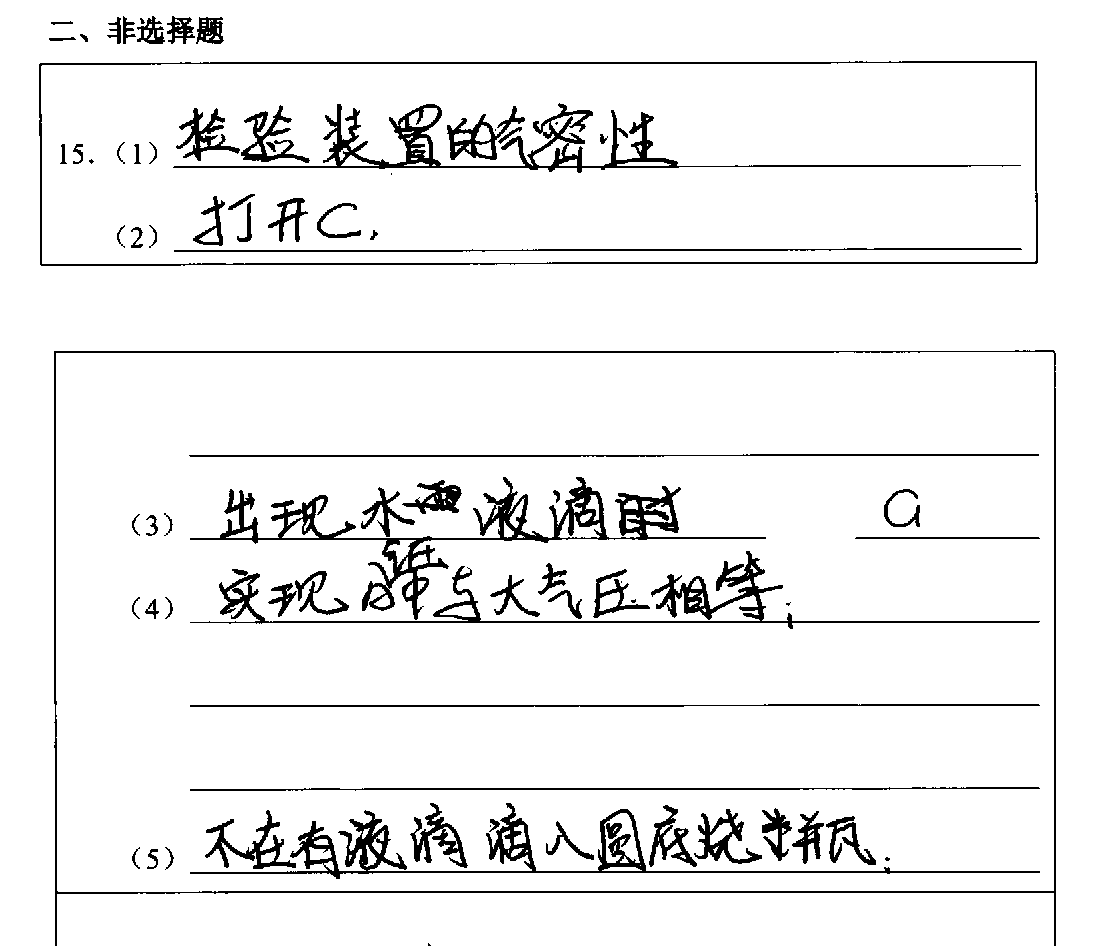 二、非选择题
15.（1）检验装置的气密性
（2）打开C.
（3）出现水 液滴时 a
（4）实现 与大气压相等;
（5）不在有液滴滴入圆底烧瓶;